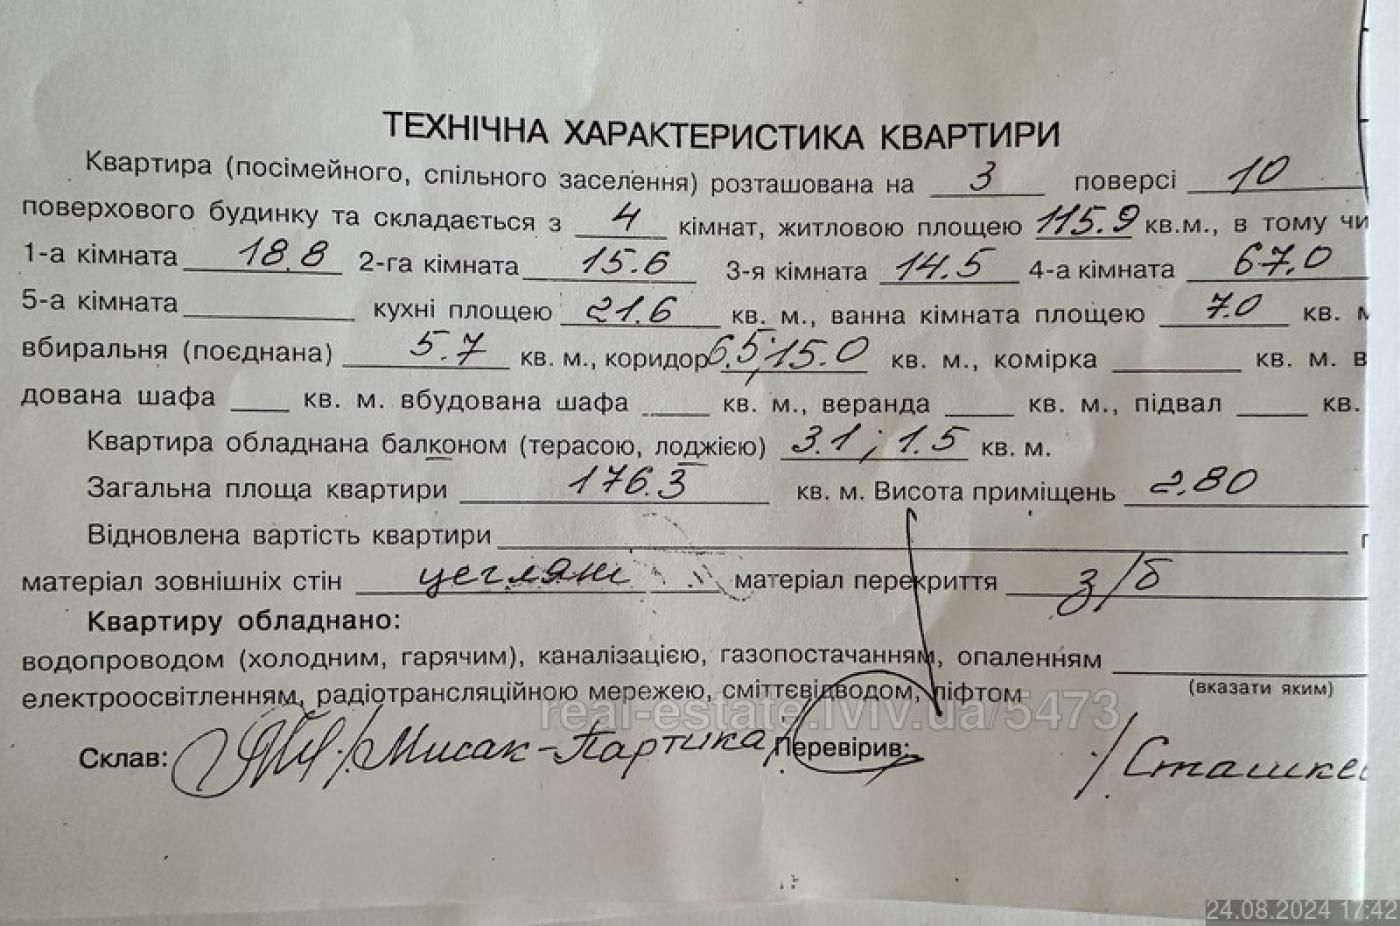 ТЕХНІЧНА ХАРАКТЕРИСТИКА КВАРТИРИ
Квартира (посімейного, спільного заселення) розташована на 3 поверсі 10
поверхового будинку та складається з 4 кімнат, житловою площею 115.9 кв.м., в тому чи
1-а кімната 18.8 2-га кімната 15.6 3-я кімната 14.5 4-а кімната 67.0
5-а кімната кухні площею 21.6 кв. м., ванна кімната площею 7.0 кв. м
вбиральня (поєднана) 5.7 кв. м., коридор 6.5; 15.0 кв. м., комірка кв. м. в
дована шафа кв. м. вбудована шафа кв. м., веранда кв. м., підвал кв.
Квартира обладнана балконом (терасою, лоджією) 3.1; 1.5 кв. м.
Загальна площа квартири 176.3 кв. м. Висота приміщень 2.80
Відновлена вартість квартири
матеріал зовнішніх стін цегляні матеріал перекриття з/б
Квартиру обладнано:
водопроводом (холодним, гарячим), каналізацією, газопостачанням, опаленням
(вказати яким)
електроосвітленням, радіотрансляційною мережею, сміттєвідводом, ліфтом
real-estate.lviv.ua/5473
Склав: /Мисак-Партика/ Перевірив: /Сташке
24.08.2024 17:42